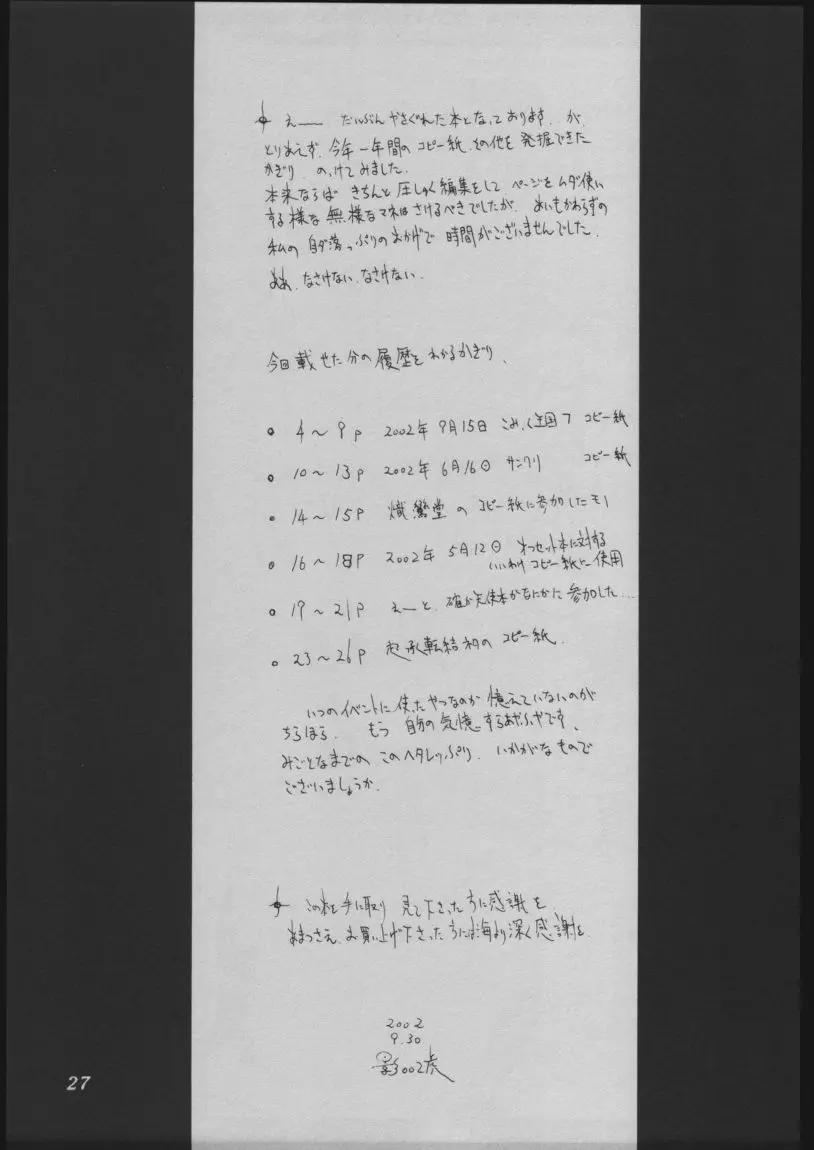 えー だいぶんやさぐれた本となっております、が、
とりあえず、今年一年間のコピー紙、その他を発掘できた
かぎり、のっけてみました。
本来ならばきちんと圧しゅく編集をしてページをムダ使い
する様な無様なマネはさけるべきでしたが、あいもかわらずの
私の自ダ落っぷりのおかげで時間がございませんでした。
ああ、なさけない、なさけない。
今回載せた分の履歴をわかるかぎり、
4〜9p 2002年9月15日 こみっく 7 コピー紙
10〜13p 2002年6月16日 サンクリ コピー紙
14〜15p 熾鸞堂のコピー紙に参加したモノ
16〜18p 2002年5月12日 オフセット本に対する
いいわけコピー紙に使用
19〜21p えーと、確か天使本かなにかに参加した…
23〜26p 起承転結初のコピー紙。
いつのイベントに使ったやつなのか憶えていないのが
ちらほら。 もう自分の気憶するあやふやです、
みごとなまでのこのヘタレっぷり、いかがなもので
ございましょうか。
この本を手に取り見て下さった方に感謝を
あまつさえ、お買い上げ下さった方には海より深く感謝を
2002
9.30
影002虎
27